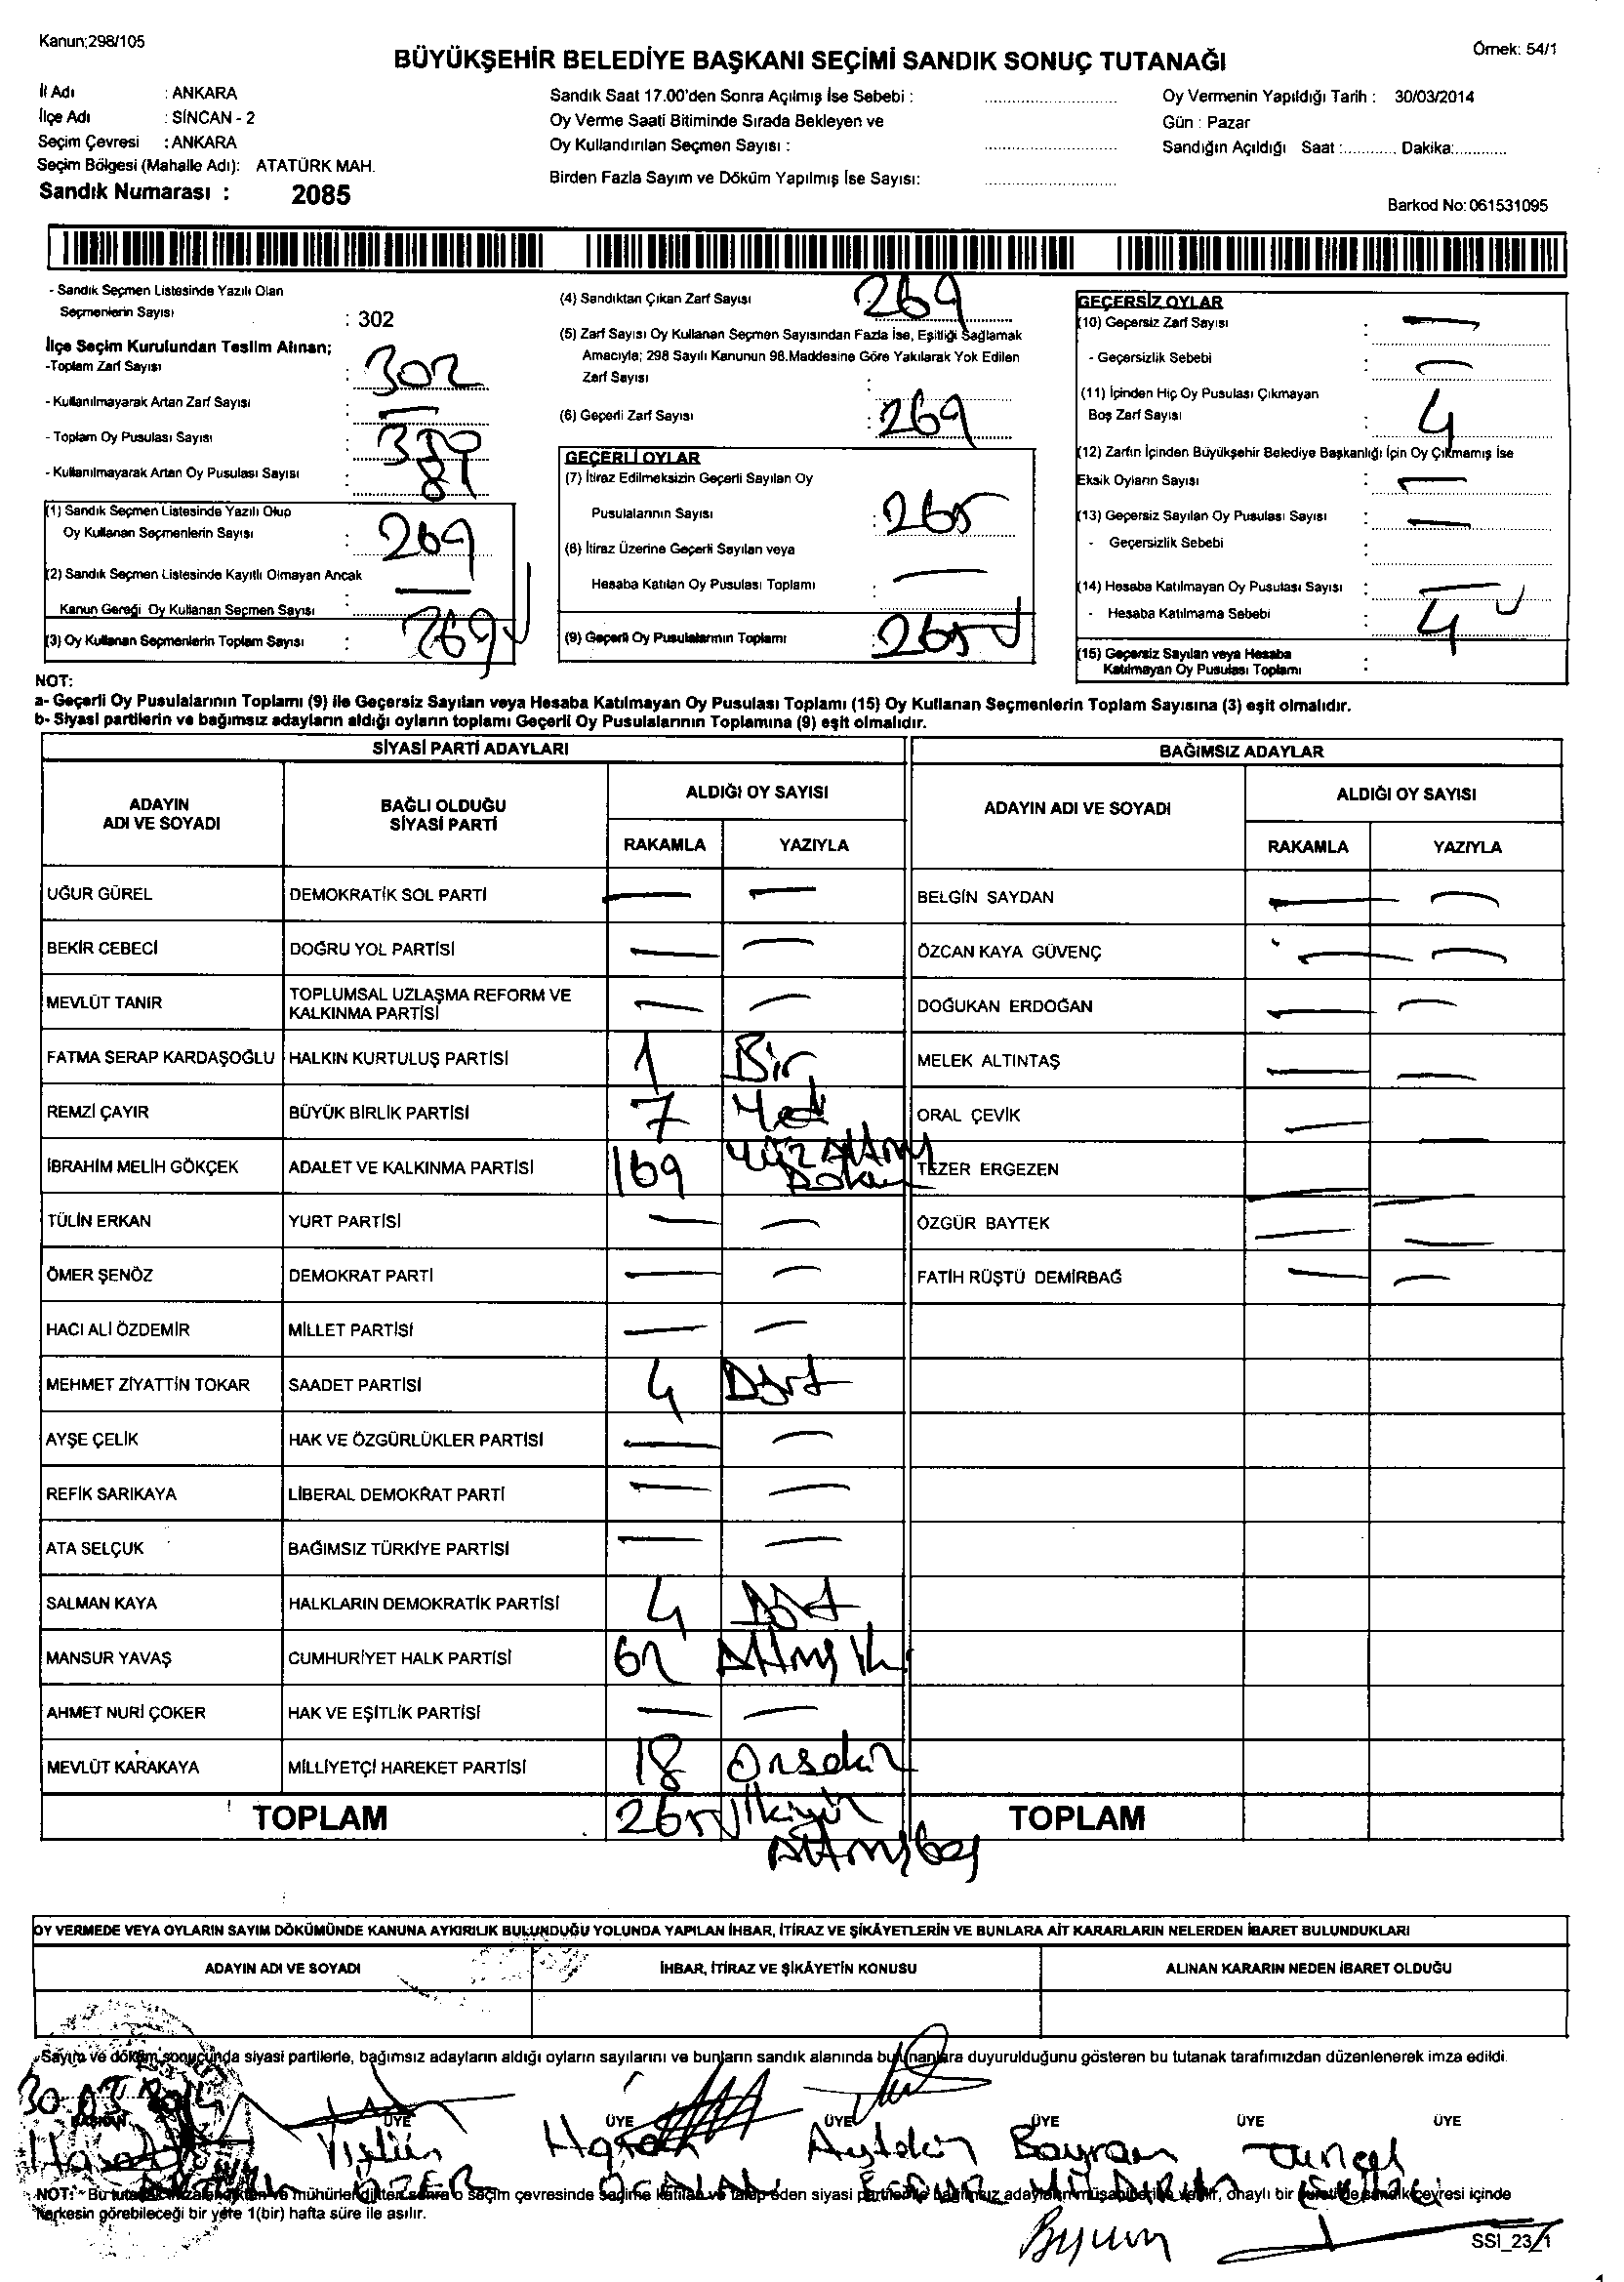 Kanun;298/105
Örnek: 54/1
BÜYÜKŞEHİR BELEDİYE BAŞKANI SEÇİMİ SANDIK SONUÇ TUTANAĞI
İl Adı : ANKARA
İlçe Adı : SİNCAN - 2
Seçim Çevresi : ANKARA
Seçim Bölgesi (Mahalle Adı): ATATÜRK MAH.
Sandık Numarası : 2085
Sandık Saat 17.00'den Sonra Açılmış İse Sebebi :
Oy Verme Saati Bitiminde Sırada Bekleyen ve
Oy Kullandırılan Seçmen Sayısı :
Birden Fazla Sayım ve Döküm Yapılmış İse Sayısı:
Oy Vermenin Yapıldığı Tarih : 30/03/2014
Gün : Pazar
Sandığın Açıldığı Saat :............ Dakika:............
Barkod No: 061531095
- Sandık Seçmen Listesinde Yazılı Olan
Seçmenlerin Sayısı : 302
İlçe Seçim Kurulundan Teslim Alınan;
-Toplam Zarf Sayısı : 302
- Kullanılmayarak Artan Zarf Sayısı : —
- Toplam Oy Pusulası Sayısı : 389
- Kullanılmayarak Artan Oy Pusulası Sayısı : 89
(1) Sandık Seçmen Listesinde Yazılı Olup
Oy Kullanan Seçmenlerin Sayısı : 269
(2) Sandık Seçmen Listesinde Kayıtlı Olmayan Ancak
Kanun Gereği Oy Kullanan Seçmen Sayısı : —
(3) Oy Kullanan Seçmenlerin Toplam Sayısı : 269
(4) Sandıktan Çıkan Zarf Sayısı 269
(5) Zarf Sayısı Oy Kullanan Seçmen Sayısından Fazla İse, Eşitliği Sağlamak
Amacıyla; 298 Sayılı Kanunun 98.Maddesine Göre Yakılarak Yok Edilen
Zarf Sayısı :
(6) Geçerli Zarf Sayısı : 269
GEÇERLİ OYLAR
(7) İtiraz Edilmeksizin Geçerli Sayılan Oy
Pusulalarının Sayısı : 265
(8) İtiraz Üzerine Geçerli Sayılan veya
Hesaba Katılan Oy Pusulası Toplamı : —
(9) Geçerli Oy Pusulalarının Toplamı : 265
GEÇERSİZ OYLAR
(10) Geçersiz Zarf Sayısı : —
- Geçersizlik Sebebi : —
(11) İçinden Hiç Oy Pusulası Çıkmayan
Boş Zarf Sayısı : 4
(12) Zarfın İçinden Büyükşehir Belediye Başkanlığı İçin Oy Çıkmamış İse
Eksik Oyların Sayısı : —
(13) Geçersiz Sayılan Oy Pusulası Sayısı : —
- Geçersizlik Sebebi :
(14) Hesaba Katılmayan Oy Pusulası Sayısı : —
- Hesaba Katılmama Sebebi : 4
(15) Geçersiz Sayılan veya Hesaba
Katılmayan Oy Pusulası Toplamı :
NOT:
a- Geçerli Oy Pusulalarının Toplamı (9) ile Geçersiz Sayılan veya Hesaba Katılmayan Oy Pusulası Toplamı (15) Oy Kullanan Seçmenlerin Toplam Sayısına (3) eşit olmalıdır.
b- Siyasi partilerin ve bağımsız adayların aldığı oyların toplamı Geçerli Oy Pusulalarının Toplamına (9) eşit olmalıdır.
SİYASİ PARTİ ADAYLARI
ADAYIN
ADI VE SOYADI
BAĞLI OLDUĞU
SİYASİ PARTİ
ALDIĞI OY SAYISI
RAKAMLA YAZIYLA
UĞUR GÜREL DEMOKRATİK SOL PARTİ — —
BEKİR CEBECİ DOĞRU YOL PARTİSİ — —
MEVLÜT TANIR TOPLUMSAL UZLAŞMA REFORM VE
KALKINMA PARTİSİ — —
FATMA SERAP KARDAŞOĞLU HALKIN KURTULUŞ PARTİSİ 1 Bir
REMZİ ÇAYIR BÜYÜK BİRLİK PARTİSİ 7 Yedi
İBRAHİM MELİH GÖKÇEK ADALET VE KALKINMA PARTİSİ 169 Yüz Altmış
Dokuz
TÜLİN ERKAN YURT PARTİSİ — —
ÖMER ŞENÖZ DEMOKRAT PARTİ — —
HACI ALİ ÖZDEMİR MİLLET PARTİSİ — —
MEHMET ZİYATTİN TOKAR SAADET PARTİSİ 4 Dört
AYŞE ÇELİK HAK VE ÖZGÜRLÜKLER PARTİSİ — —
REFİK SARIKAYA LİBERAL DEMOKRAT PARTİ — —
ATA SELÇUK BAĞIMSIZ TÜRKİYE PARTİSİ — —
SALMAN KAYA HALKLARIN DEMOKRATİK PARTİSİ 4 Dört
MANSUR YAVAŞ CUMHURİYET HALK PARTİSİ 62 Altmış İki
AHMET NURİ ÇOKER HAK VE EŞİTLİK PARTİSİ — —
MEVLÜT KARAKAYA MİLLİYETÇİ HAREKET PARTİSİ 18 Onsekiz
TOPLAM 265 İkiyüz
Altmışbeş
BAĞIMSIZ ADAYLAR
ADAYIN ADI VE SOYADI
ALDIĞI OY SAYISI
RAKAMLA YAZIYLA
BELGİN SAYDAN — —
ÖZCAN KAYA GÜVENÇ — —
DOĞUKAN ERDOĞAN — —
MELEK ALTINTAŞ — —
ORAL ÇEVİK — —
TEZER ERGEZEN — —
ÖZGÜR BAYTEK — —
FATİH RÜŞTÜ DEMİRBAĞ — —
TOPLAM
OY VERMEDE VEYA OYLARIN SAYIM DÖKÜMÜNDE KANUNA AYKIRILIK BULUNDUĞU YOLUNDA YAPILAN İHBAR, İTİRAZ VE ŞİKÂYETLERİN VE BUNLARA AİT KARARLARIN NELERDEN İBARET BULUNDUKLARI
ADAYIN ADI VE SOYADI İHBAR, İTİRAZ VE ŞİKÂYETİN KONUSU ALINAN KARARIN NEDEN İBARET OLDUĞU
Sayım ve döküm sonucunda siyasi partilerle, bağımsız adayların aldığı oyların sayılarını ve bunların sandık alanında bulunanlara duyurulduğunu gösteren bu tutanak tarafımızdan düzenlenerek imza edildi.
30.03.2014
BAŞKAN ÜYE ÜYE ÜYE ÜYE ÜYE ÜYE
Hasan Aytekin Bayram Tuncel
ÖZER YILDIRIM
NOT: Bu tutanak mühürlendikten sonra o seçim çevresinde seçime katılan ve talep eden siyasi partiler ile bağımsız adayların müşahitlerine onaylı bir sandık çevresi içinde
herkesin görebileceği bir yere 1(bir) hafta süre ile asılır.
SSI_23_1